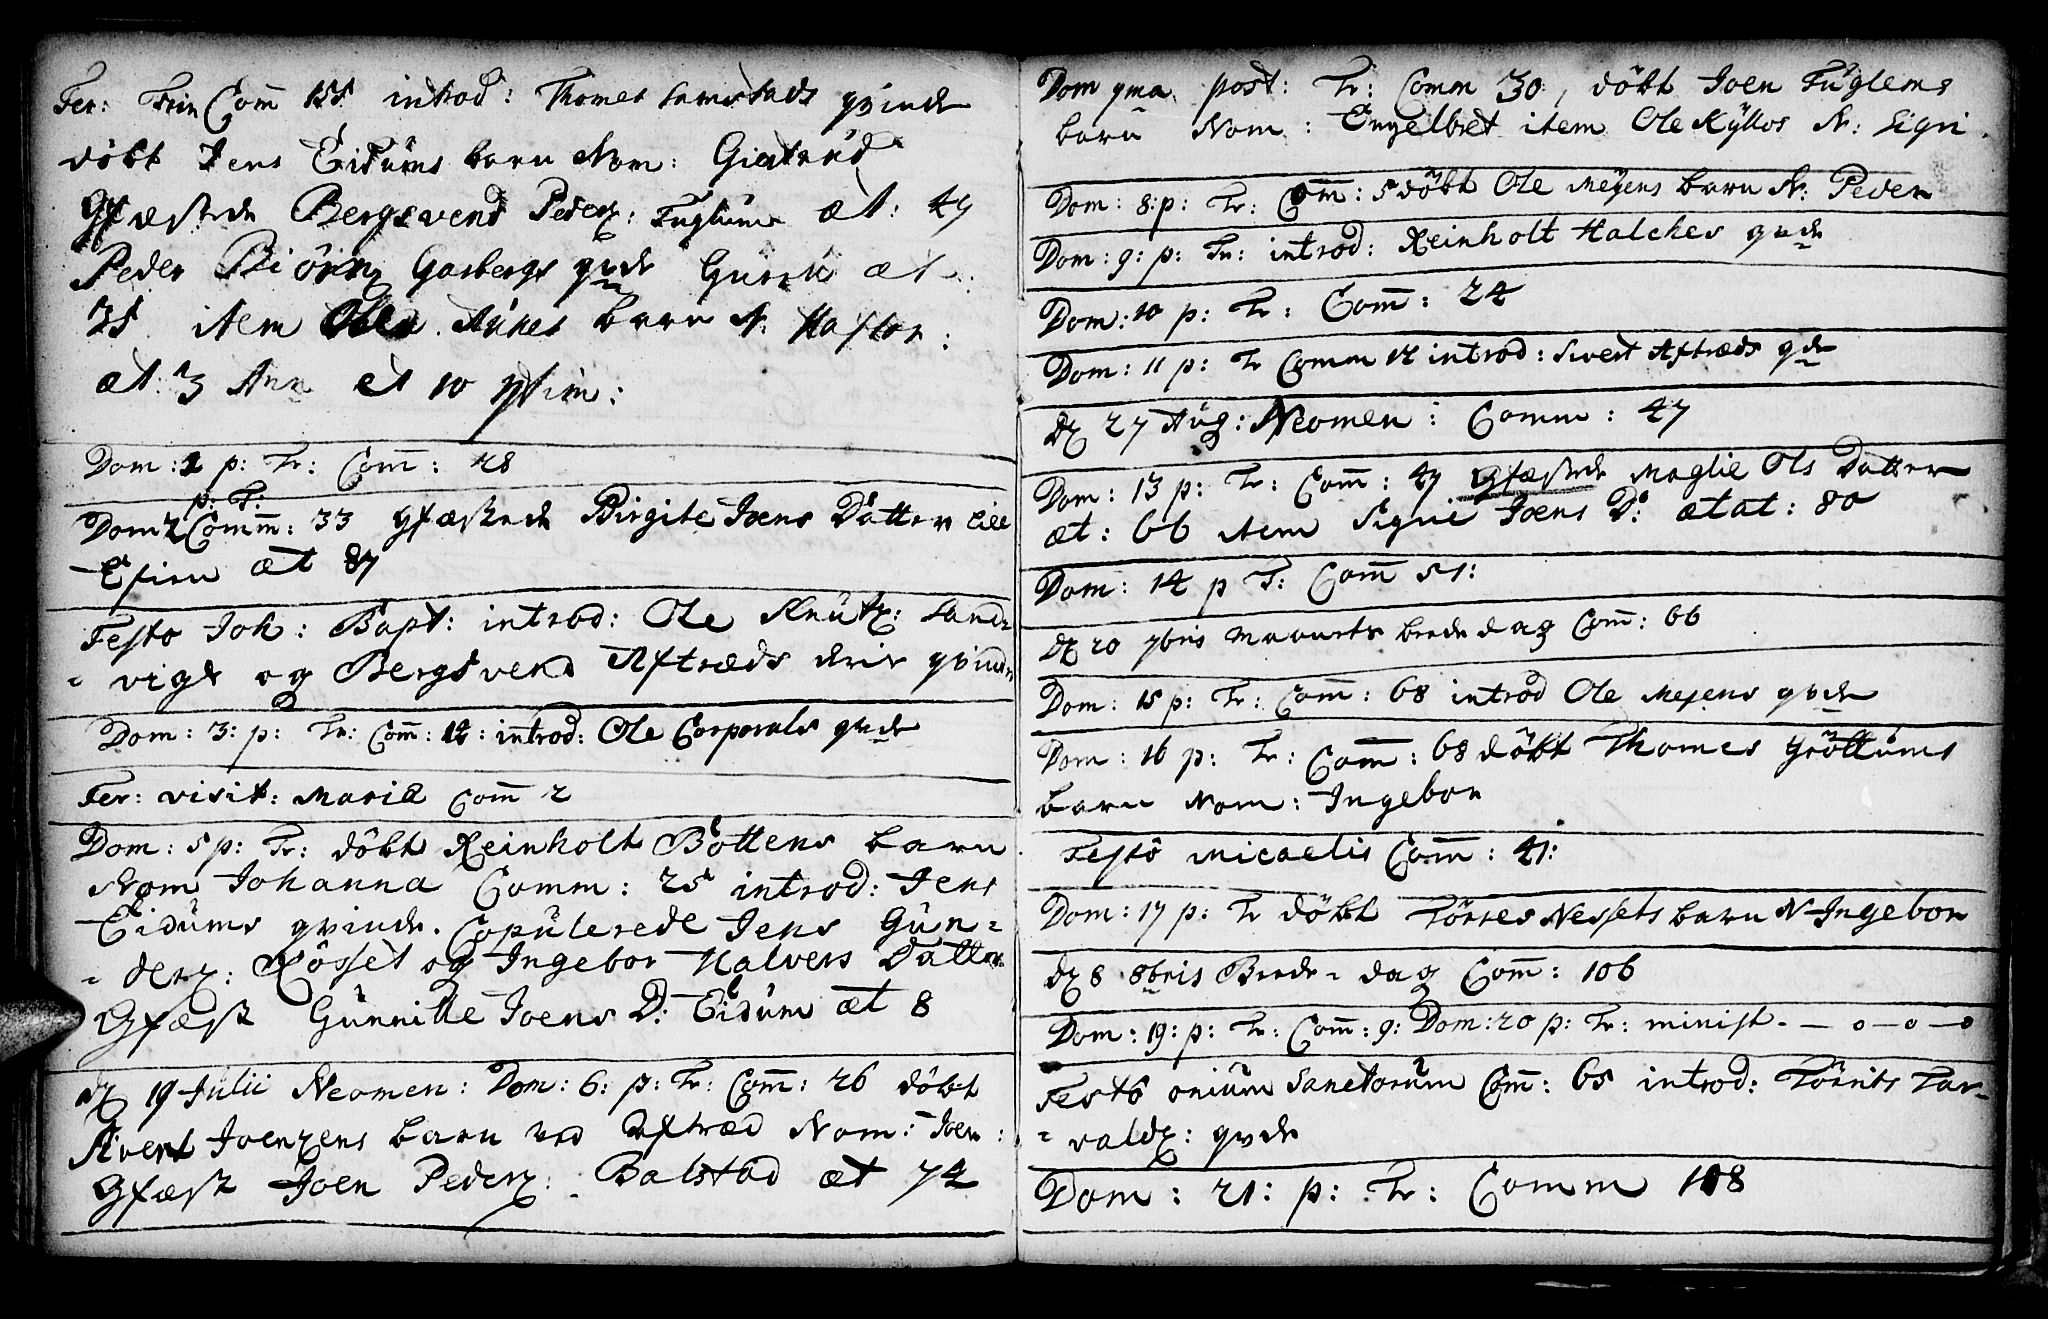 Fer: Trin Com̄ 155 introd: Thomes Lerestads qvinde
döbt Jens Eidums barn Nom: Giertrud
Gfæstede Bergsvend Pederz: Fuglum æt: 47
Peder Biörnz Garbergs qvde Guru æt:
75 item Ole Aunes barn N: Haftor:
æt: 3 Ann et 10 Sptim:
Dom: 1 p: Tr: Com̄: 28
p: T:
Dom 2 Com̄m: 33 Gfæstede Birgite Joens Datter lill
Efien æt 87
Festo Joh: Bapt: introd: Ole Knutz: Sand=
= vigs og Bergsvend Aftræds deris qvinder
Dom: 3: p: Tr: Com̄: 12: introd: Ole Corporals qvde
Fer: visit: Mariæ Com̄ 2
Dom: 5 p: Tr: döbt Reinholt Bottens barn
Nom Johanna Comm: 25 introd: Jens
Eidums qvinde. Copulerede Jens Gun=
= derz: Rösset og Ingebor Halvers Datter
Gfæst Gunnille Joens D: Eidum æt 8
dz 19 Julii Neomen: Dom: 6: p: Tr: Com̄: 26 döbt
Sivert Joenzens barn ved Aftræd Nom: Joen:
Gfæst Joen Pederz: Balstad æt 74
Dom 7ma post: Tr: Comm 30, döbt Joen Fuglems
barn Nom: Engelbret item Ole Kyllos N: Sigri.
Dom: 8: p: Tr: Com̄: 5 döbt Ole Mejens barn N: Peder
Dom: 9: p: Tr: introd: Reinholt Halches qvde
Dom: 10 p: Tr: Com̄: 24
Dom: 11 p: Tr Comm 12 introd: Sivert Aftræds qde
dz 27 Aug: Neomen: Comm: 47
Dom: 13 p: Tr: Com̄: 47 Gfæstede Maglie Ols Datter
æt: 66 item Signe Joens D: ætat: 80
Dom: 14 p T: Com̄ 51:
dz 20 7bris Maanets bededag Com̄: 66
Dom: 15 p: Tr: Com̄: 68 introd Ole Mejens qvde
Dom: 16 p: Tr: Com̄: 68 döbt Thomes Gröttums
barn Nom: Ingebor
Festo Micaelis Com̄: 41:
Dom: 17 p: Tr döbt Törres Nessets barn N Ingebor
dz 8 8bris Bede = dag Com̄: 106
Dom: 19: p: Tr: Com̄: 9: Dom: 20 p: Tr: minist. — o — o — o
Festo om̄ium Sanctorum Com̄: 65 introd: Törris Tor=
= valdz: qvde
Dom: 21: p: Tr: Comm 108